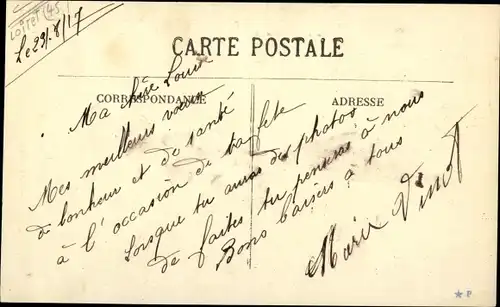 LOIRET (45)
Le 23/8/17
CARTE POSTALE
CORRESPONDANCE
ADRESSE
Ma
Mes meilleurs vœux
de bonheur et de santé
à l'occasion de ta fête
Lorsque tu auras des photos
de faites tu penseras à nous
Bons baisers à tous
Marie Vinot
* P